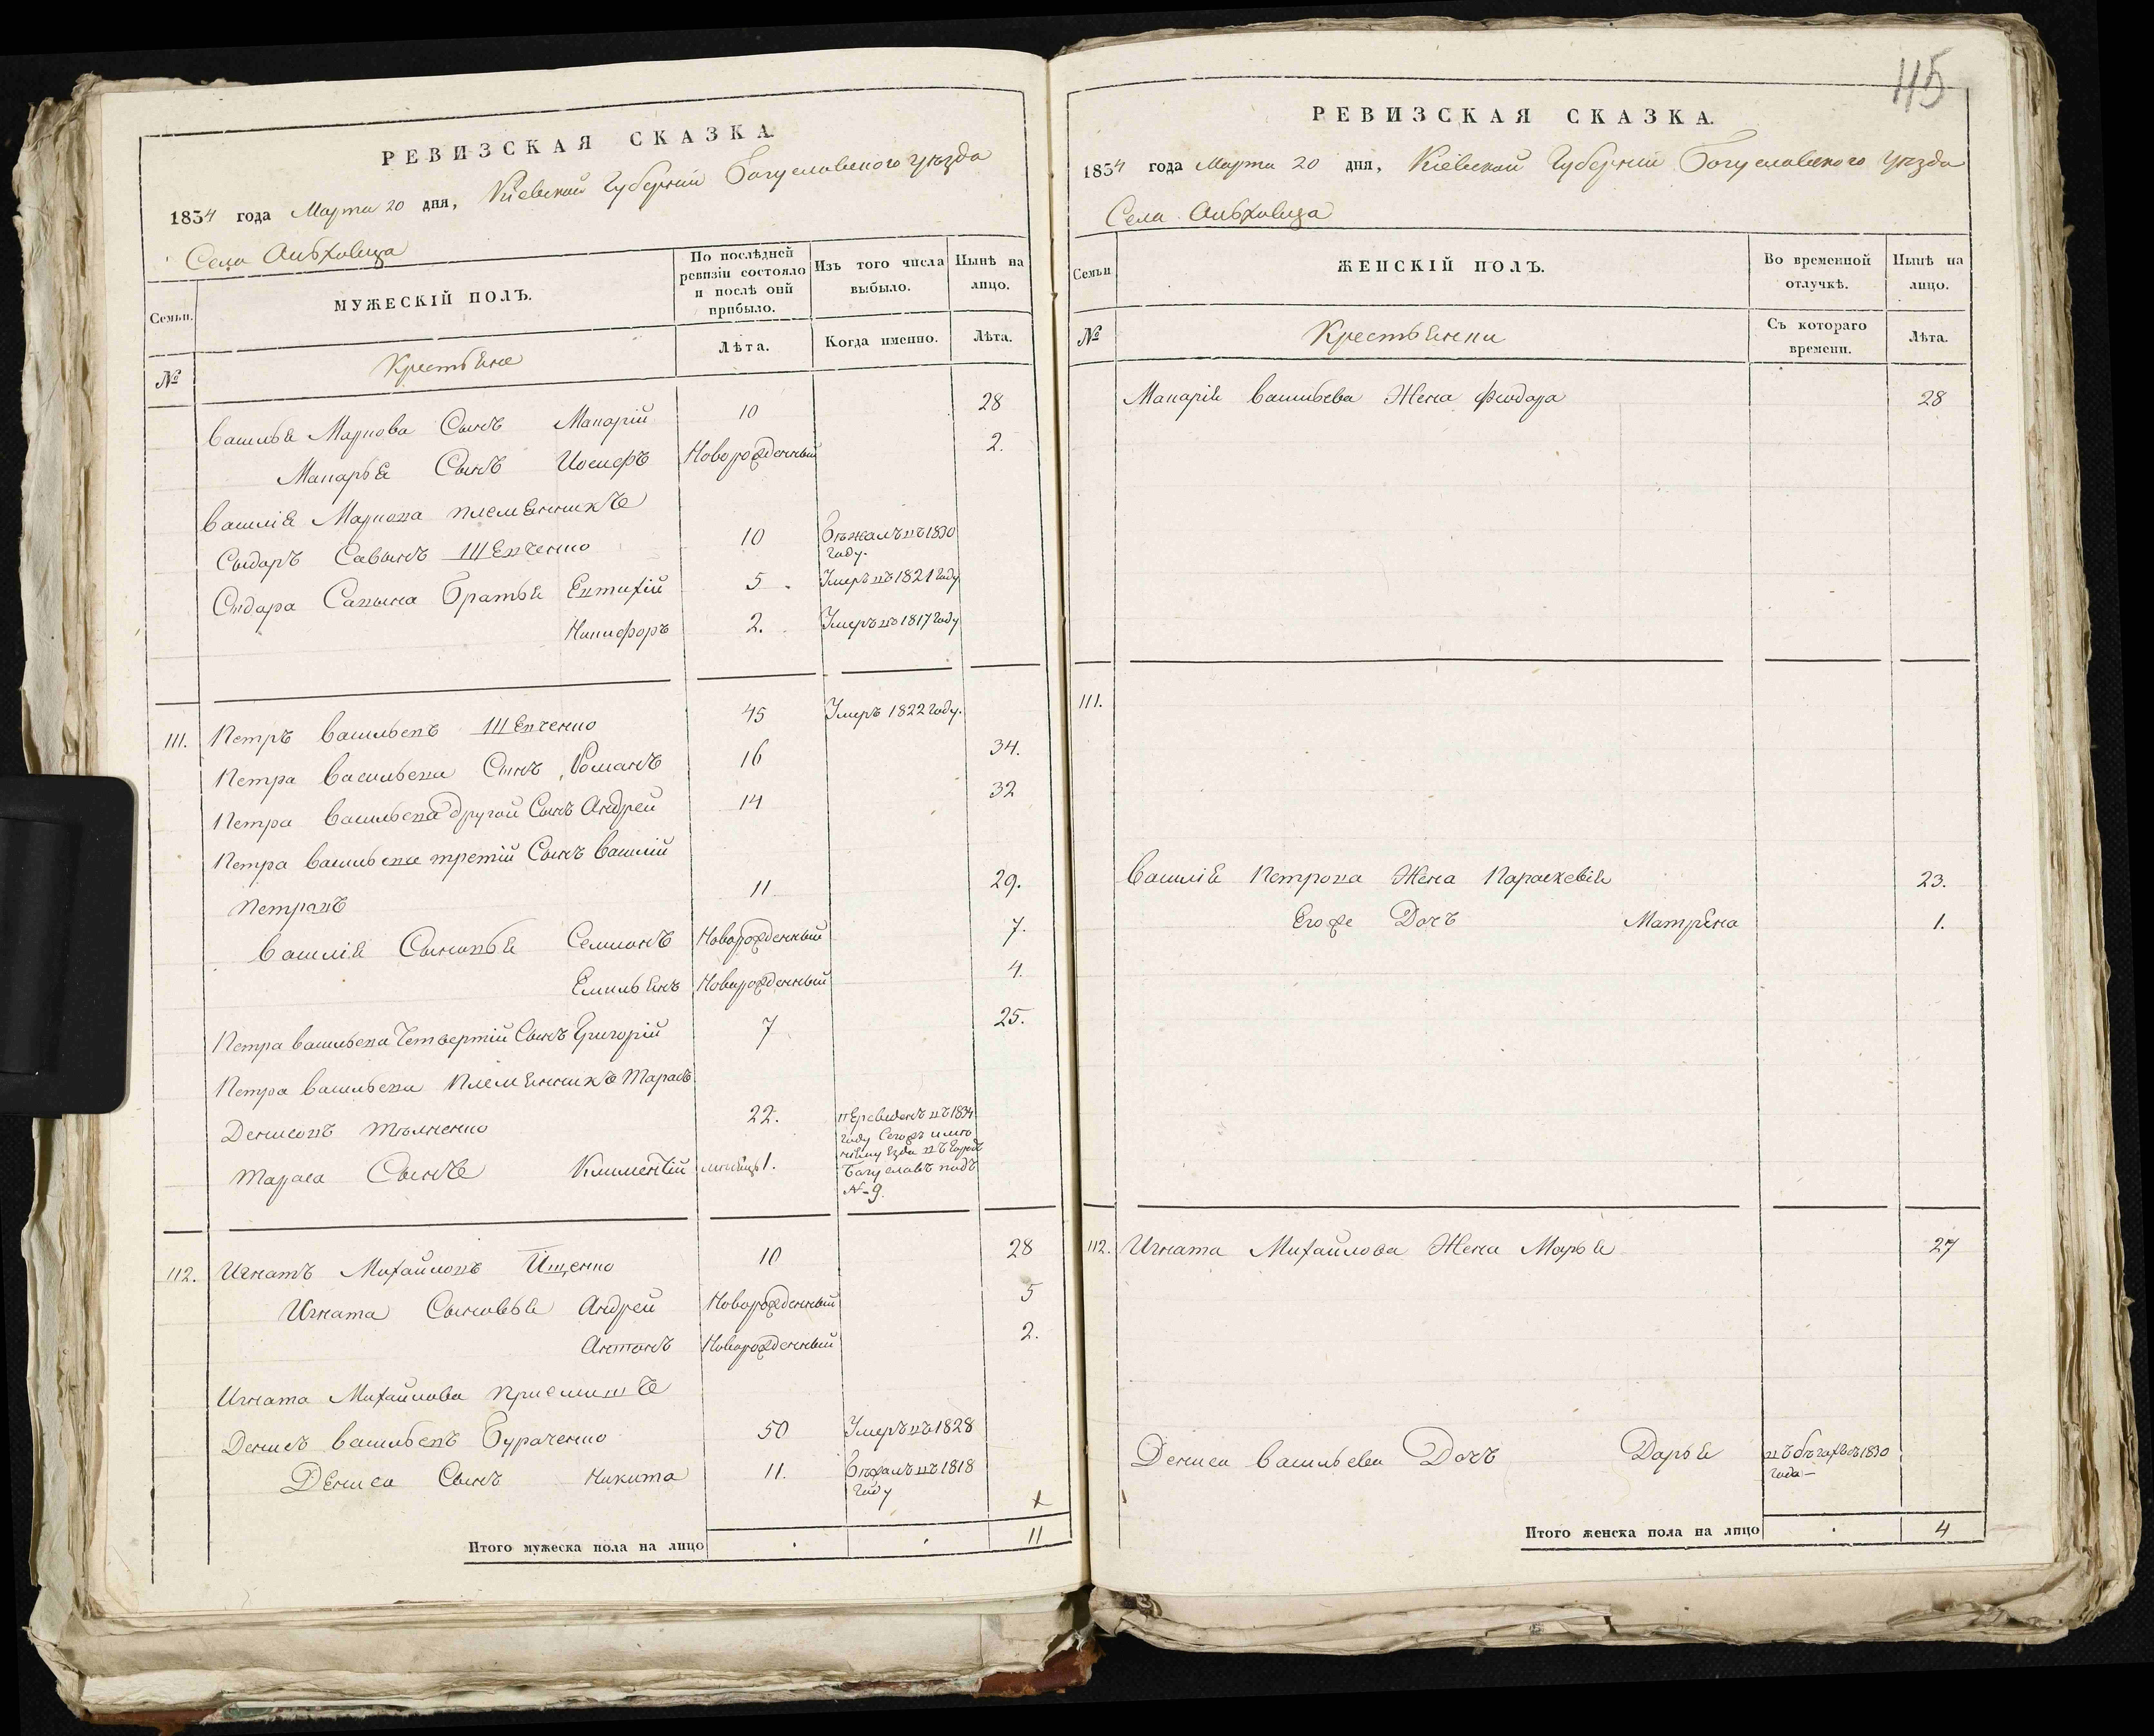 РЕВИЗСКАЯ СКАЗКА.
1834 года Марта 20 дня, Кіевской Губерніи Богуславского уѣзда
Села Ольховца
Семьи.
МУЖЕСКІЙ ПОЛЪ.
По послѣдней ревизіи состояло и послѣ оной прибыло.
Изъ того числа выбыло.
Нынѣ на лицо.
№
Крестьяне
Лѣта.
Когда именно.
Лѣта.
Василья Маркова Сынъ Макарій 10 28
Макарья Сынъ Иосифъ Новорожденный 2.
Василія Маркова племянникъ
Сыдоръ Савинъ Шевченко 10 Бѣжалъ въ 1830 году.
Сидора Савина Братья Евтихій 5 Умеръ въ 1821 году
Никифоръ 2. Умеръ въ 1817 году
111. Петръ Васильевъ Шевченко 45 Умеръ 1822 году.
Петра Васильева Сынъ Романъ 16 34.
Петра Васильева другой Сынъ Андрей 14 32
Петра Васильева третій Сынъ Василій
Петровъ 11 29.
Василія Сыновья Семионъ Новорожденный 7.
Емильянъ Новорожденный 4.
Петра Васильева Четвертій Сынъ Григорій 7 25.
Петра Васильева Племянникъ Тарасъ
Денисовъ 22. переведенъ въ 1834
году Сегожъ имѣ
нія въ Город
Тараса Сынъ Климентій 1. Богуславъ подъ
№ 9.
112. Игнатъ Михайловъ Ищенко 10 28
Игната Сыновья Андрей Новорожденный 5
Антонъ Новорожденный 2.
Игната Михайлова приемышъ
Денисъ Васильевъ Бураченко 50 Умеръ въ 1828
Дениса Сынъ Никита 11. Бѣжалъ въ 1818 году
Итого мужеска пола на лицо 11
115
РЕВИЗСКАЯ СКАЗКА.
1834 года Марта 20 дня, Кіевской Губерніи Богуславского уѣзда
Села Ольховца
Семьи
ЖЕНСКІЙ ПОЛЪ.
Во временной отлучкѣ.
Нынѣ на лицо.
№
Крестьянки
Съ котораго времени.
Лѣта.
Макарія Васильева Жена Феодора 28
111.
Василія Петрова Жена Параскевія 23.
Егоже Дочъ Матрена 1.
112. Игната Михайлова Жена Марья 27
Дениса Васильева Дочъ Дарья въ бѣгахъ съ 1830 года
Итого женска пола на лицо 4